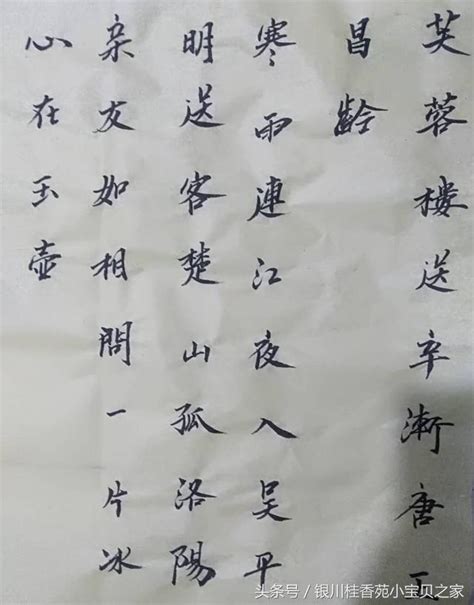 芙蓉樓送辛漸唐王
昌齡
寒雨連江夜入吴平
明送客楚山孤洛陽
亲友如相問一片冰
心在玉壺
头条号/银川桂香苑小宝贝之家